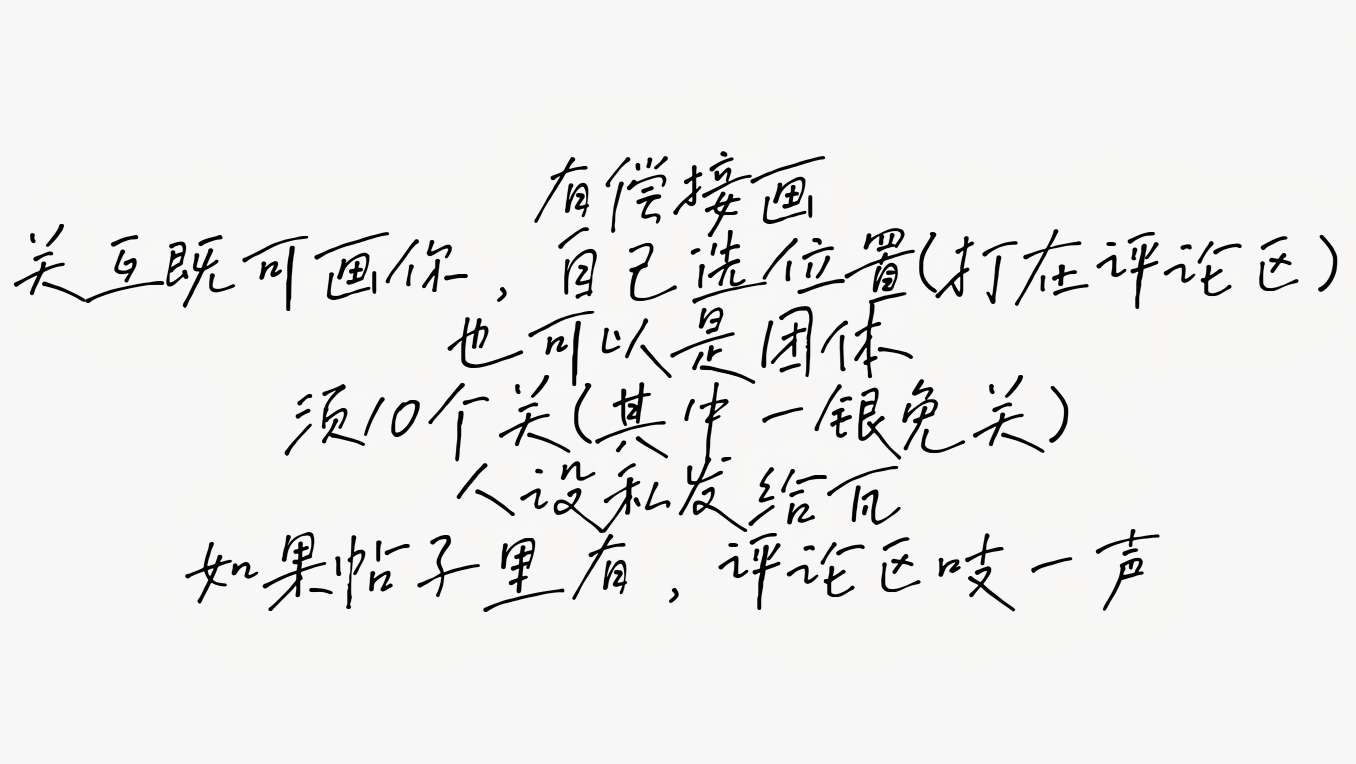 有偿接画
关互既可画你，自己选位置(打在评论区)
也可以是团体
须10个关(其中一银免关)
人设私发给瓦
如果帖子里有，评论区吱一声